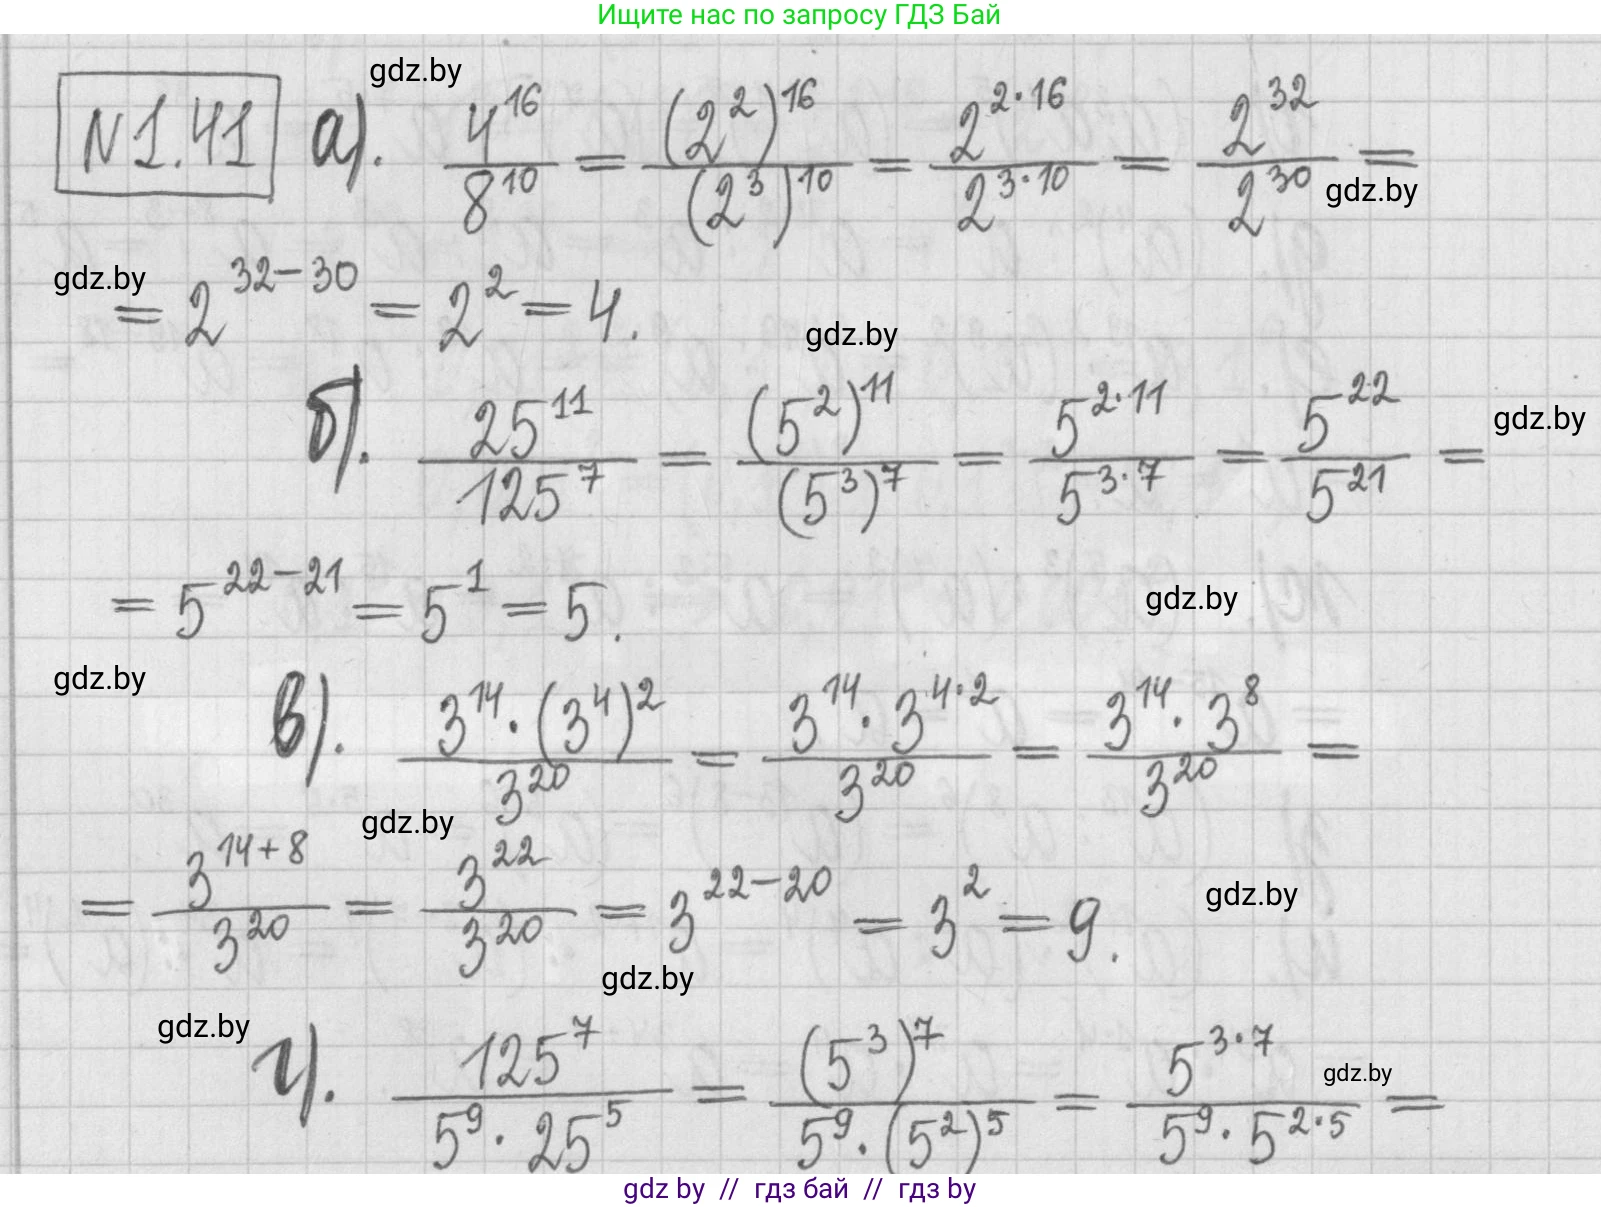 Ищите нас по запросу ГДЗ Бай
gdz.by
N1.41 а). 4^16/8^10 = (2^2)^16/(2^3)^10 = 2^(2·16)/2^(3·10) = 2^32/2^30 =
gdz.by
gdz.by
= 2^(32-30) = 2^2 = 4.
gdz.by
б). 25^11/125^7 = (5^2)^11/(5^3)^7 = 5^(2·11)/5^(3·7) = 5^22/5^21 =
gdz.by
= 5^(22-21) = 5^1 = 5.
gdz.by
gdz.by
в). 3^14·(3^4)^2/3^20 = 3^14·3^(4·2)/3^20 = 3^14·3^8/3^20 =
gdz.by
= 3^(14+8)/3^20 = 3^22/3^20 = 3^(22-20) = 3^2 = 9.
gdz.by
gdz.by
gdz.by
г). 125^7/(5^9·25^5) = (5^3)^7/(5^9·(5^2)^5) = 5^(3·7)/(5^9·5^(2·5)) =
gdz.by
gdz by // гдз бай // гдз by